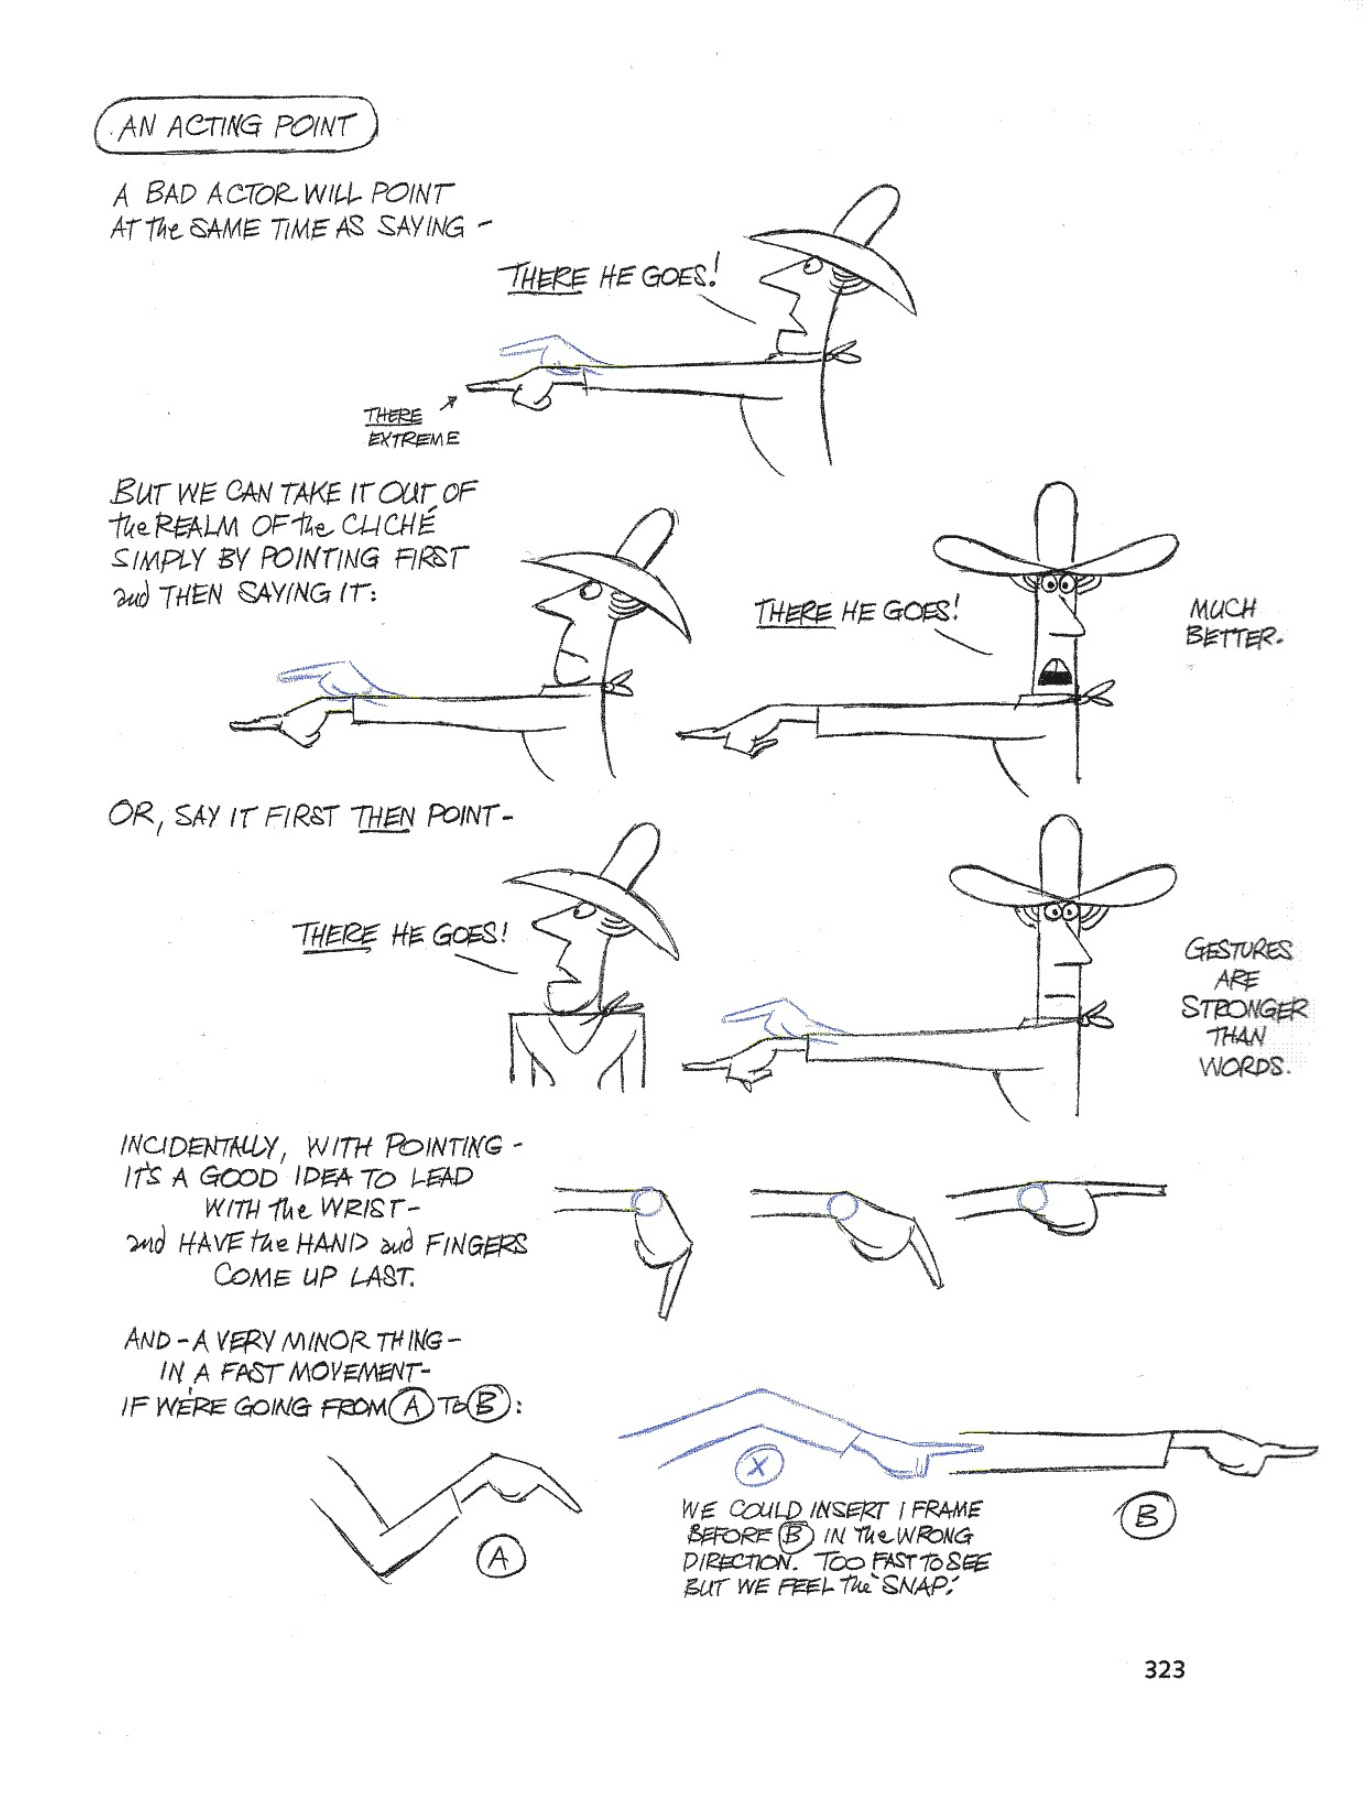 AN ACTING POINT
A BAD ACTOR WILL POINT
AT the SAME TIME AS SAYING -
THERE HE GOES!
THERE
EXTREME
BUT WE CAN TAKE IT OUT OF
the REALM OF the CLICHÉ
SIMPLY BY POINTING FIRST
and THEN SAYING IT:
THERE HE GOES!
MUCH
BETTER.
OR, SAY IT FIRST THEN POINT -
THERE HE GOES!
GESTURES
ARE
STRONGER
THAN
WORDS.
INCIDENTALLY, WITH POINTING -
IT'S A GOOD IDEA TO LEAD
WITH the WRIST -
and HAVE the HAND and FINGERS
COME UP LAST.
AND - A VERY MINOR THING -
IN A FAST MOVEMENT -
IF WE'RE GOING FROM A TO B:
A
X
B
WE COULD INSERT 1 FRAME
BEFORE B IN the WRONG
DIRECTION. TOO FAST TO SEE
BUT WE FEEL the 'SNAP.'
323